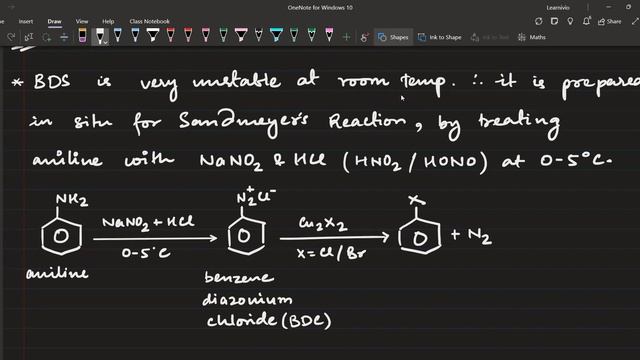 OneNote for Windows 10
Learnivio
Home Insert Draw View Help Class Notebook
Shapes
Ink to Shape
Ink to Text
Math
* BDS is very unstable at room temp. ∴ it is prepared
in situ for Sandmeyer's Reaction, by treating
aniline with NaNO2 & HCl (HNO2/HONO) at 0-5°C.
NH2 N2+Cl- X
NaNO2 + HCl Cu2X2
0-5°C X=Cl/Br + N2
aniline benzene
diazonium
chloride (BDC)